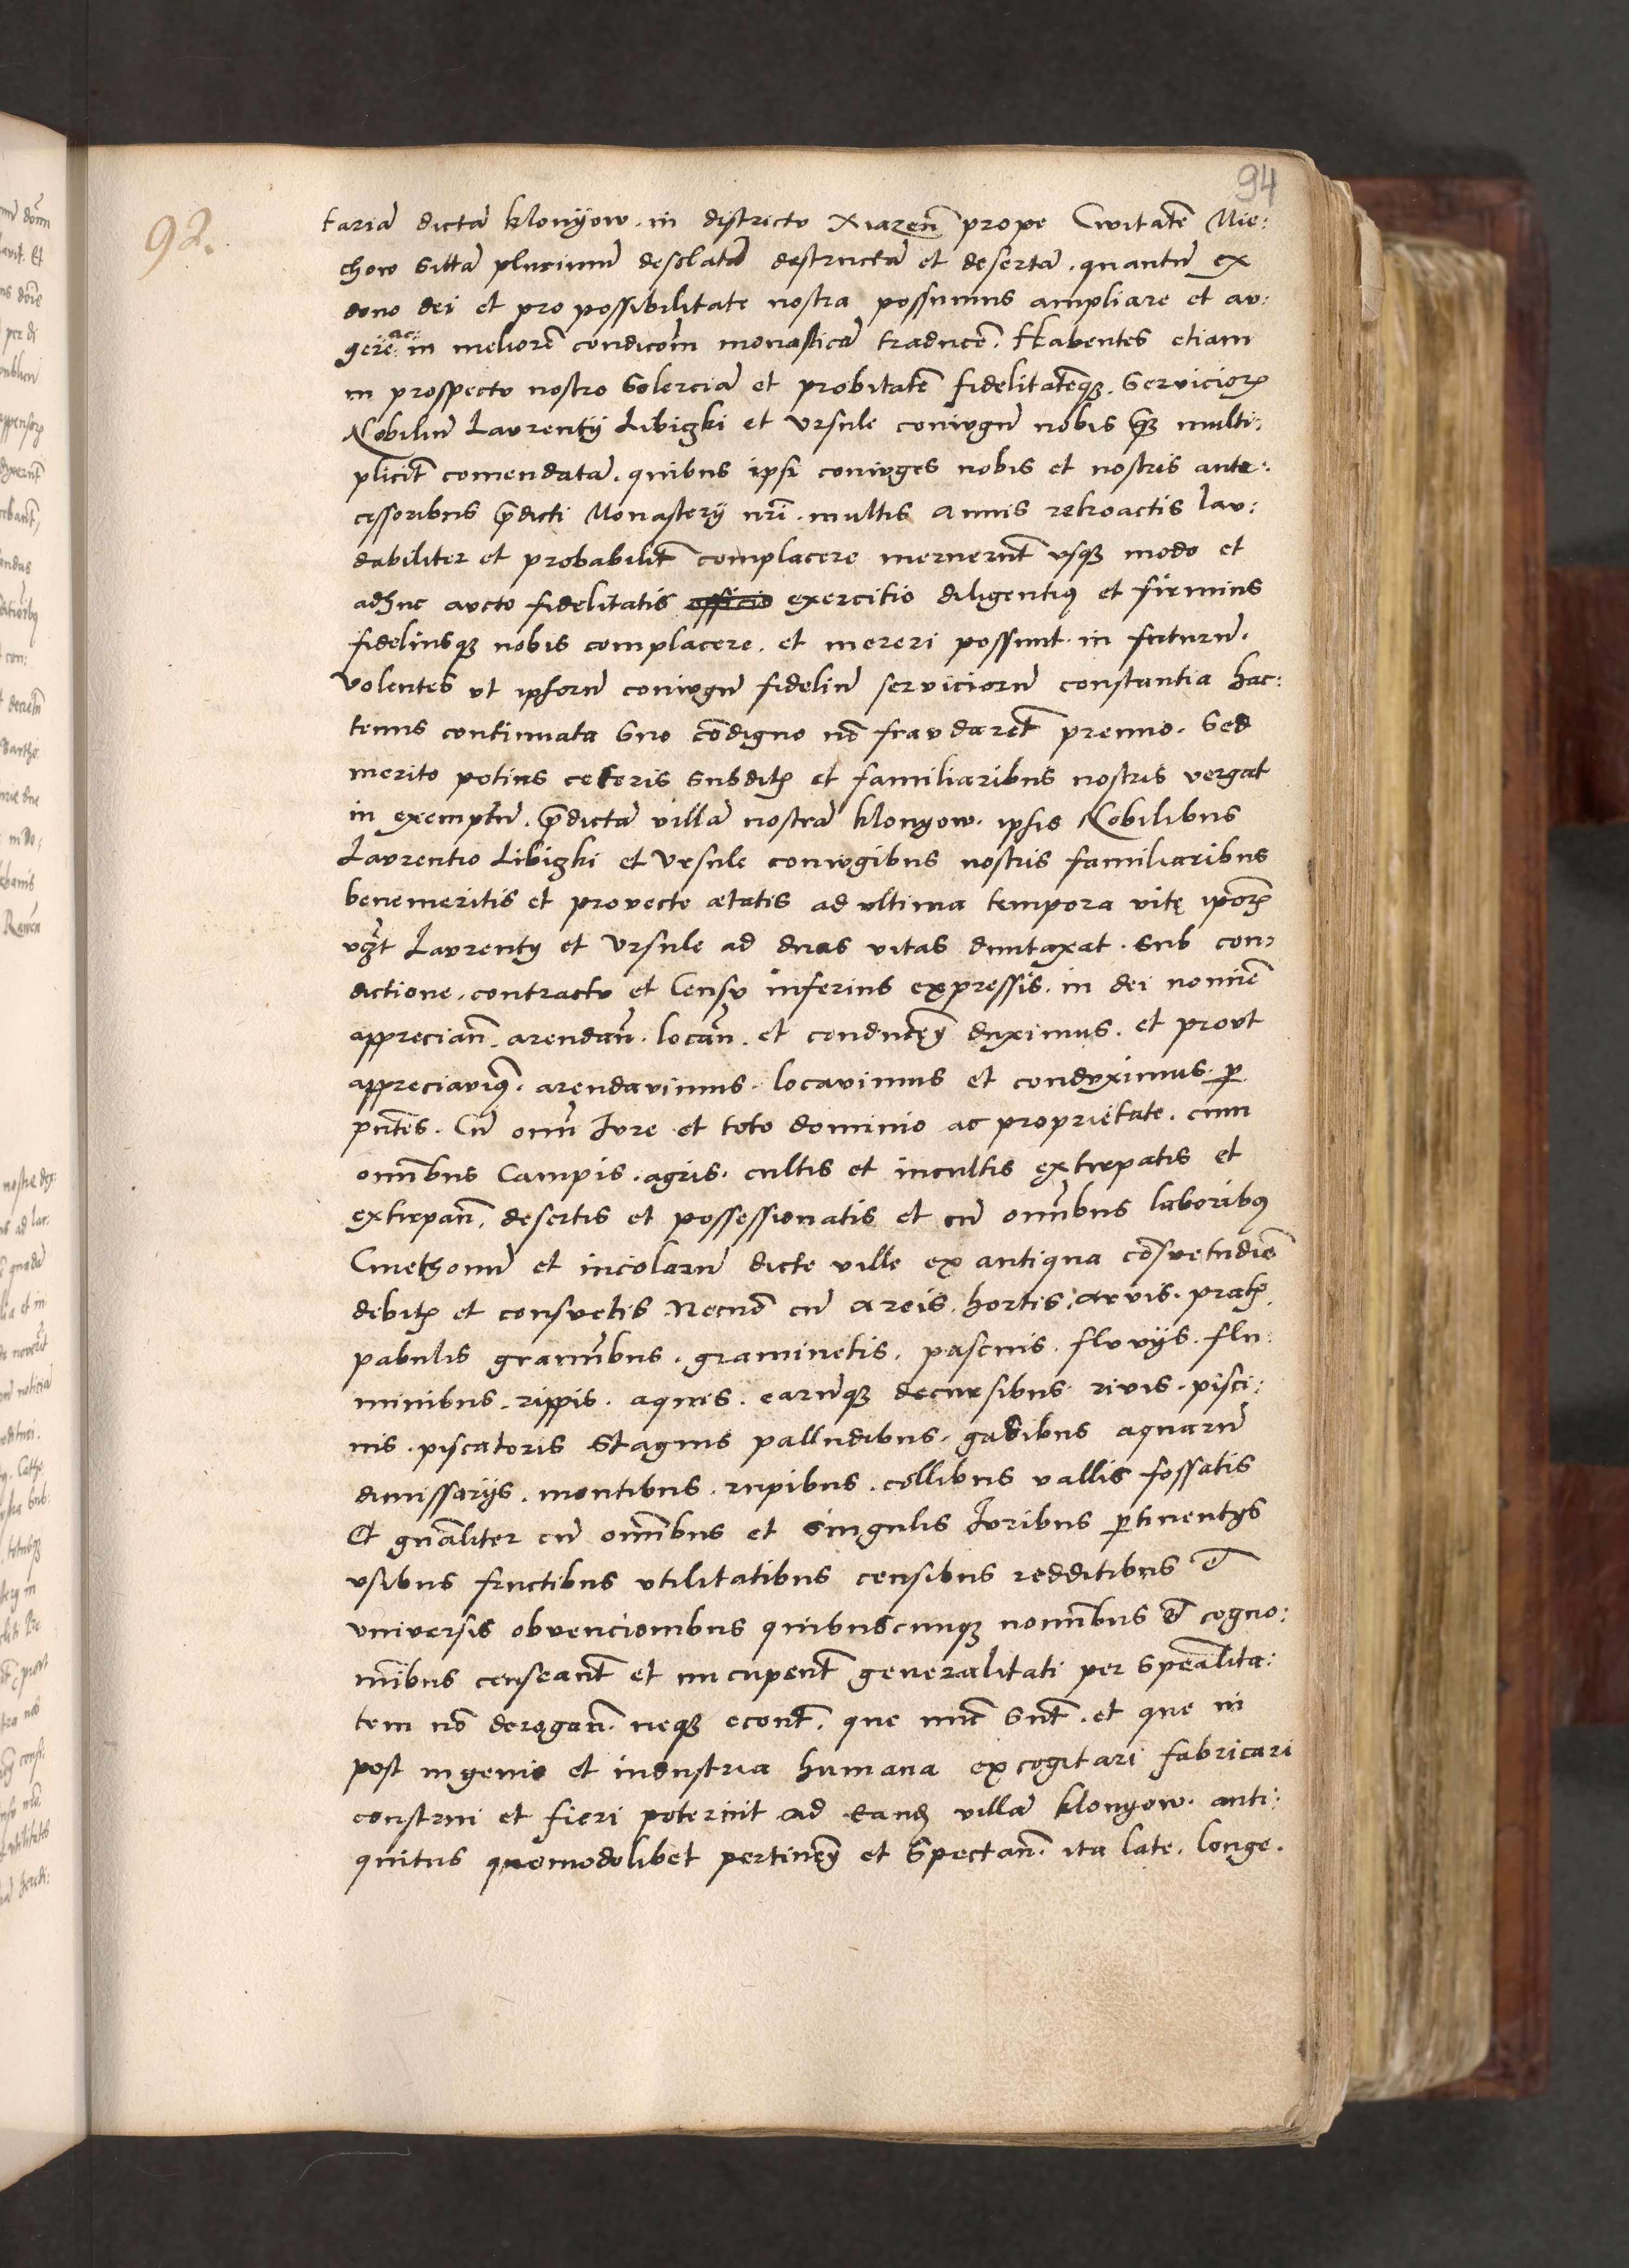 94
92.
tariā dictā klonÿow. in districtu Xiazen̄ prope Civitatē Mie:
chow sittā plurimū desolatā destructā et desertā. quantū ex
dono dei et pro possibilitate nostra possumus ampliare et au:
gere. ac in meliorē condicōm monasticā traducē. Habentes etiam
in prospectu nostro solerciā et probitatē fidelitatēqꝫ. servicioꝝ
Nobiliū Laurentÿ Libiczki et Ursule coniugū nobis multi:
plicit̄ comendatā. quibus ipsi coniuges nobis et nostris ante:
cessoribus p̄dicti Monasterÿ nr̄i. multis annis retroactis lau:
dabiliter et probabilit̄ complacere meruerūt usqꝫ modo et
adhuc aucto fidelitatis officio exercitio diligentiꝰ et firmius
fideliusqꝫ nobis complacere. et mereri possunt in futurū.
Volentes ut ipsorū coniugū fideliū serviciorū constantia hac:
tenus continuata suo cōdigno nō fraudaret̄ premio. Sed
merito potius ceteris subditꝭ et familiaribus nostris vergat
in exemplū. p̄dictā villā nostrā klonyow. ipsis Nobilibus
Laurentio Libiczki et Ursule coniugibus nostris familiaribus
benemeritis et provecte ætatis ad ultima tempora vitę ip̄oꝝ
vꝫt Laurentÿ et Ursule ad duas vitas duntaxat. sub con:
dictione. contractu et Censu inferius expressis. in dei nomīe
apprecian̄. arendan̄. locan̄. et conducen̄ duximus. et prout
appreciavimꝰ. arendavimus. locavimus et conduximus. ꝑ
pn̄tes. Cū omī Iure et toto dominio ac proprietate. cum
omībus Campis. agris. cultis et incultis extirpatis et
extirpan̄. desertis et possessionatis et cū omībus laboribꝰ
Cmethonū et incolarū dicte ville ex antiqua cōsuetudīe
debitꝭ et consuetis. Necnō cū areis. hortis. arvis. pratꝭ.
pabulis gramībus. graminetis. pascuis. fluvÿs. flu:
minibus. rippis. aquis. earūqꝫ decursibus. rivis. pisci:
nis. piscatoris stagnis palludibus. gadibus aquarū
dimissarÿs. montibus. rupibus. collibus vallis fossatis
Et gn̄aliter cū omībus et singulis Iuribus ꝑtinentÿs
usibus fructibus utilitatibus censibus redditibus et
universis obvencionibus quibuscunqꝫ nomībus et cogno:
mībus censeant̄ et nucupent̄ generalitati per spēalita:
tem nō derogan̄. neqꝫ econt̄. que nūc sūt. et que in
post ingenio et industria humana excogitari fabricari
construi et fieri poterint ad eandꝫ villā klonyow. anti:
quitus quomodolibet pertinen̄ et spectan̄. ita late. longe.